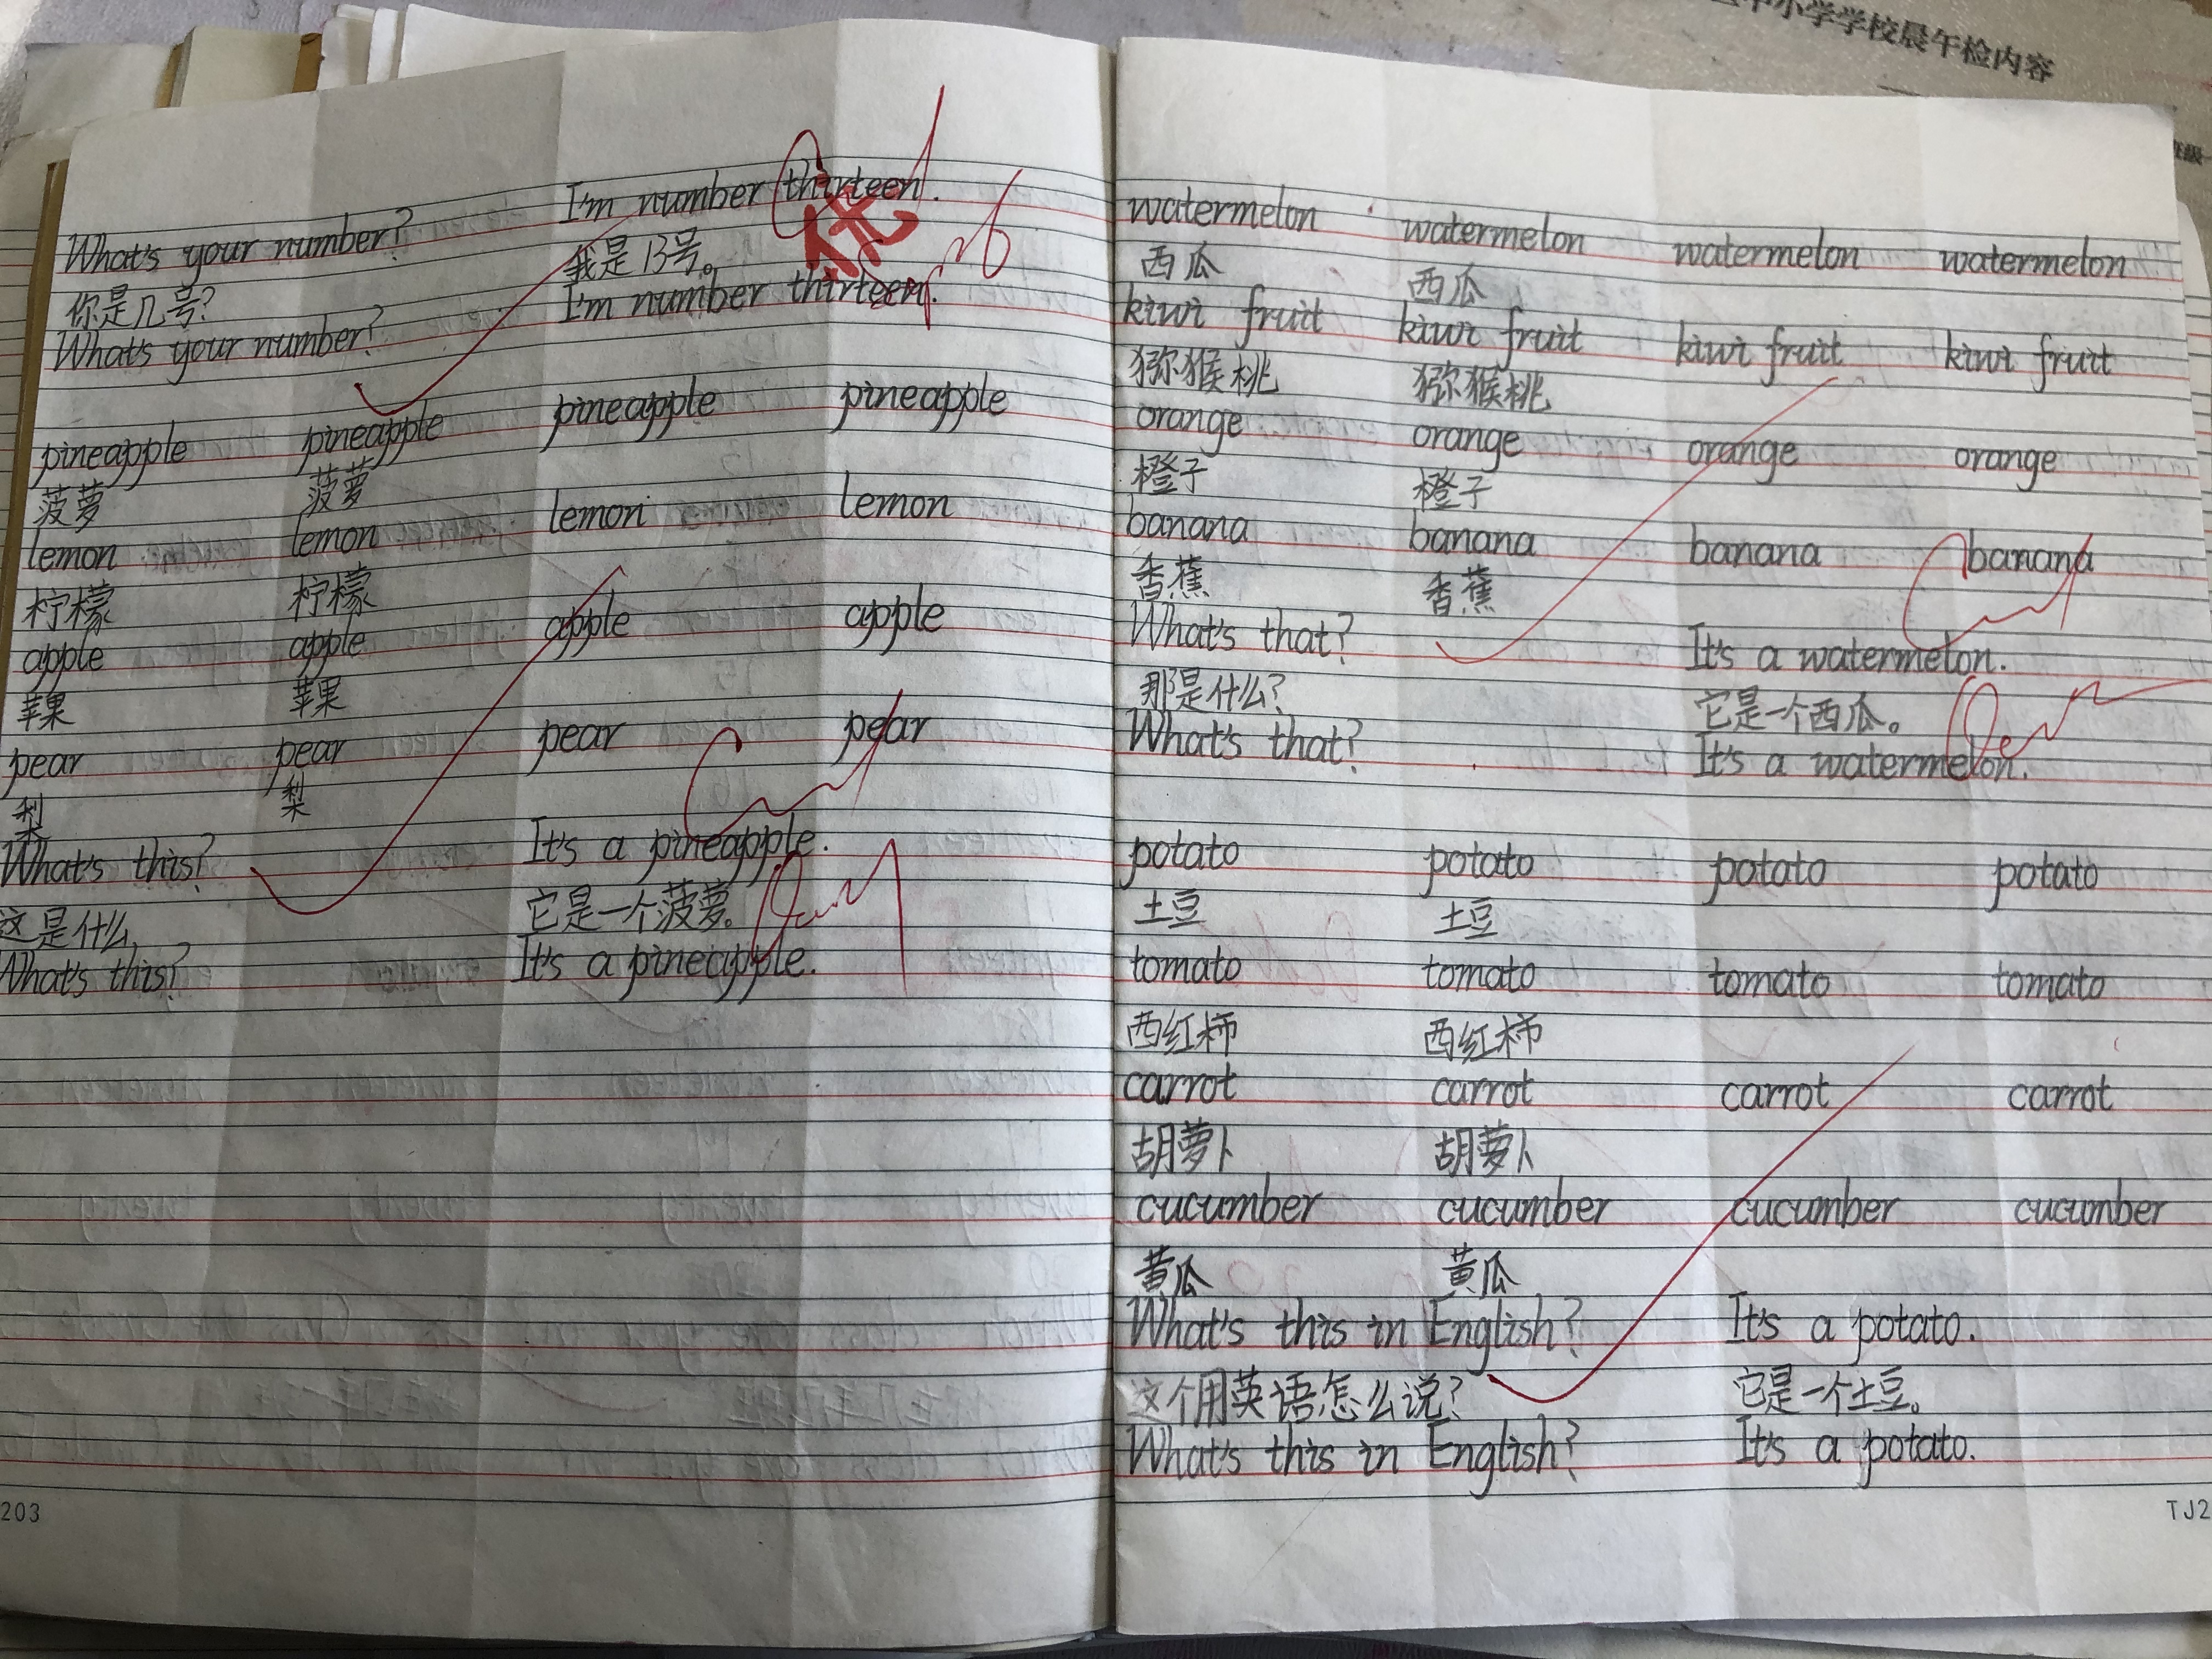 中小学学校晨午检内容
班级
What's your number? I'm number thirteen.
你是几号? 我是13号。
What's your number? I'm number thirteen.
优
pineapple pineapple pineapple pineapple
菠萝 菠萝
lemon lemon lemon lemon
柠檬 柠檬
apple apple apple apple
苹果 苹果
pear pear pear pear
梨 梨
What's this? It's a pineapple.
这是什么 它是一个菠萝。
What's this? It's a pineapple.
203
watermelon watermelon watermelon watermelon
西瓜 西瓜
kiwi fruit kiwi fruit kiwi fruit kiwi fruit
猕猴桃 猕猴桃
orange orange orange orange
橙子 橙子
banana banana banana banana
香蕉 香蕉
What's that? It's a watermelon.
那是什么? 它是一个西瓜。
What's that? It's a watermelon.
potato potato potato potato
土豆 土豆
tomato tomato tomato tomato
西红柿 西红柿
carrot carrot carrot carrot
胡萝卜 胡萝卜
cucumber cucumber cucumber cucumber
黄瓜 黄瓜
What's this in English? It's a potato.
这个用英语怎么说? 它是一个土豆。
What's this in English? It's a potato.
TJ2